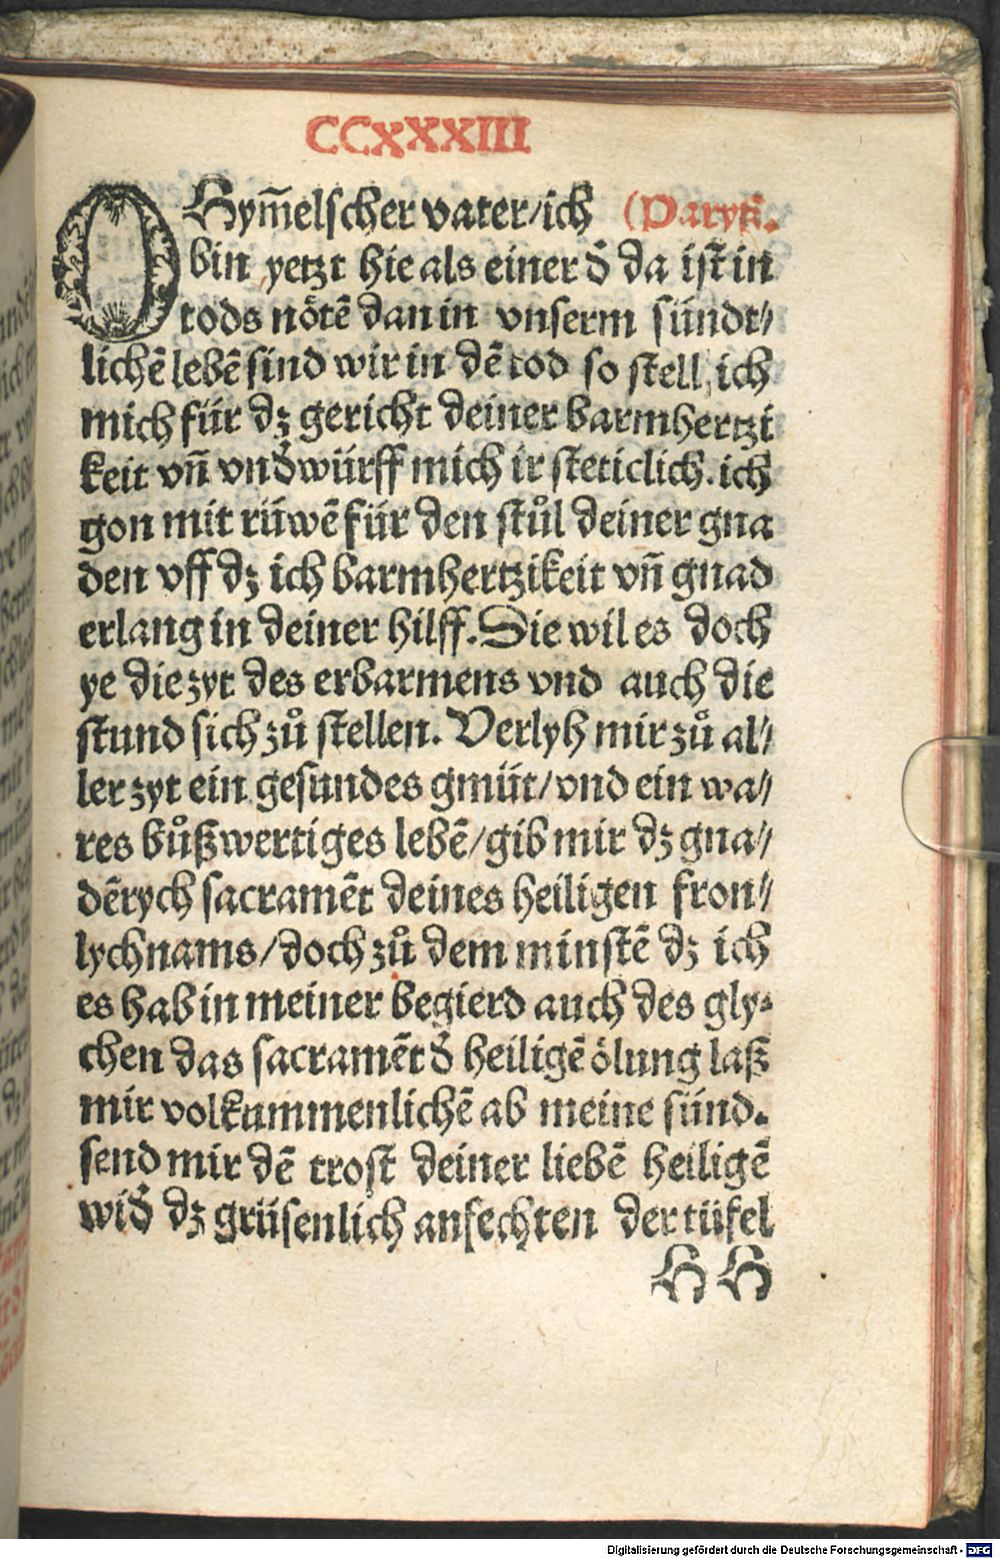 CCXXXIII
O Hym̄elscher vater/ich (Paryß.
bin yetzt hie als einer d̕ da ist in
tods nötē dan in vnserm sündt⸗
lichē lebē sind wir in dē tod so stell ich
mich für dz gericht deiner barmhertzi
keit vn̄ vnd̕würff mich ir steticlich. ich
gon mit rüwē für den stůl deiner gna
den vff dz ich barmhertzikeit vn̄ gnad
erlang in deiner hilff. Die wil es doch
ye die zyt des erbarmens vnd auch die
stund sich zů stellen. Verlyh mir zů al⸗
ler zyt ein gesundes gmüt/vnd ein wa⸗
res bůßwertiges lebē/gib mir dz gna⸗
dērych sacramēt deines heiligen fron⸗
lychnams/doch zů dem minstē dz ich
es hab in meiner begierd auch des gly⸗
chen das sacramēt d̕ heiligē ölung laß
mir volkummenlichē ab meine sünd.
send mir dē trost deiner liebē heiligē
wid̕ dz grüsenlich anfechten der tüfel
H H
Digitalisierung gefördert durch die Deutsche Forschungsgemeinschaft - DFG